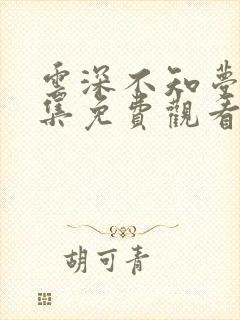 雲深不知夢
集免費觀看
胡可青